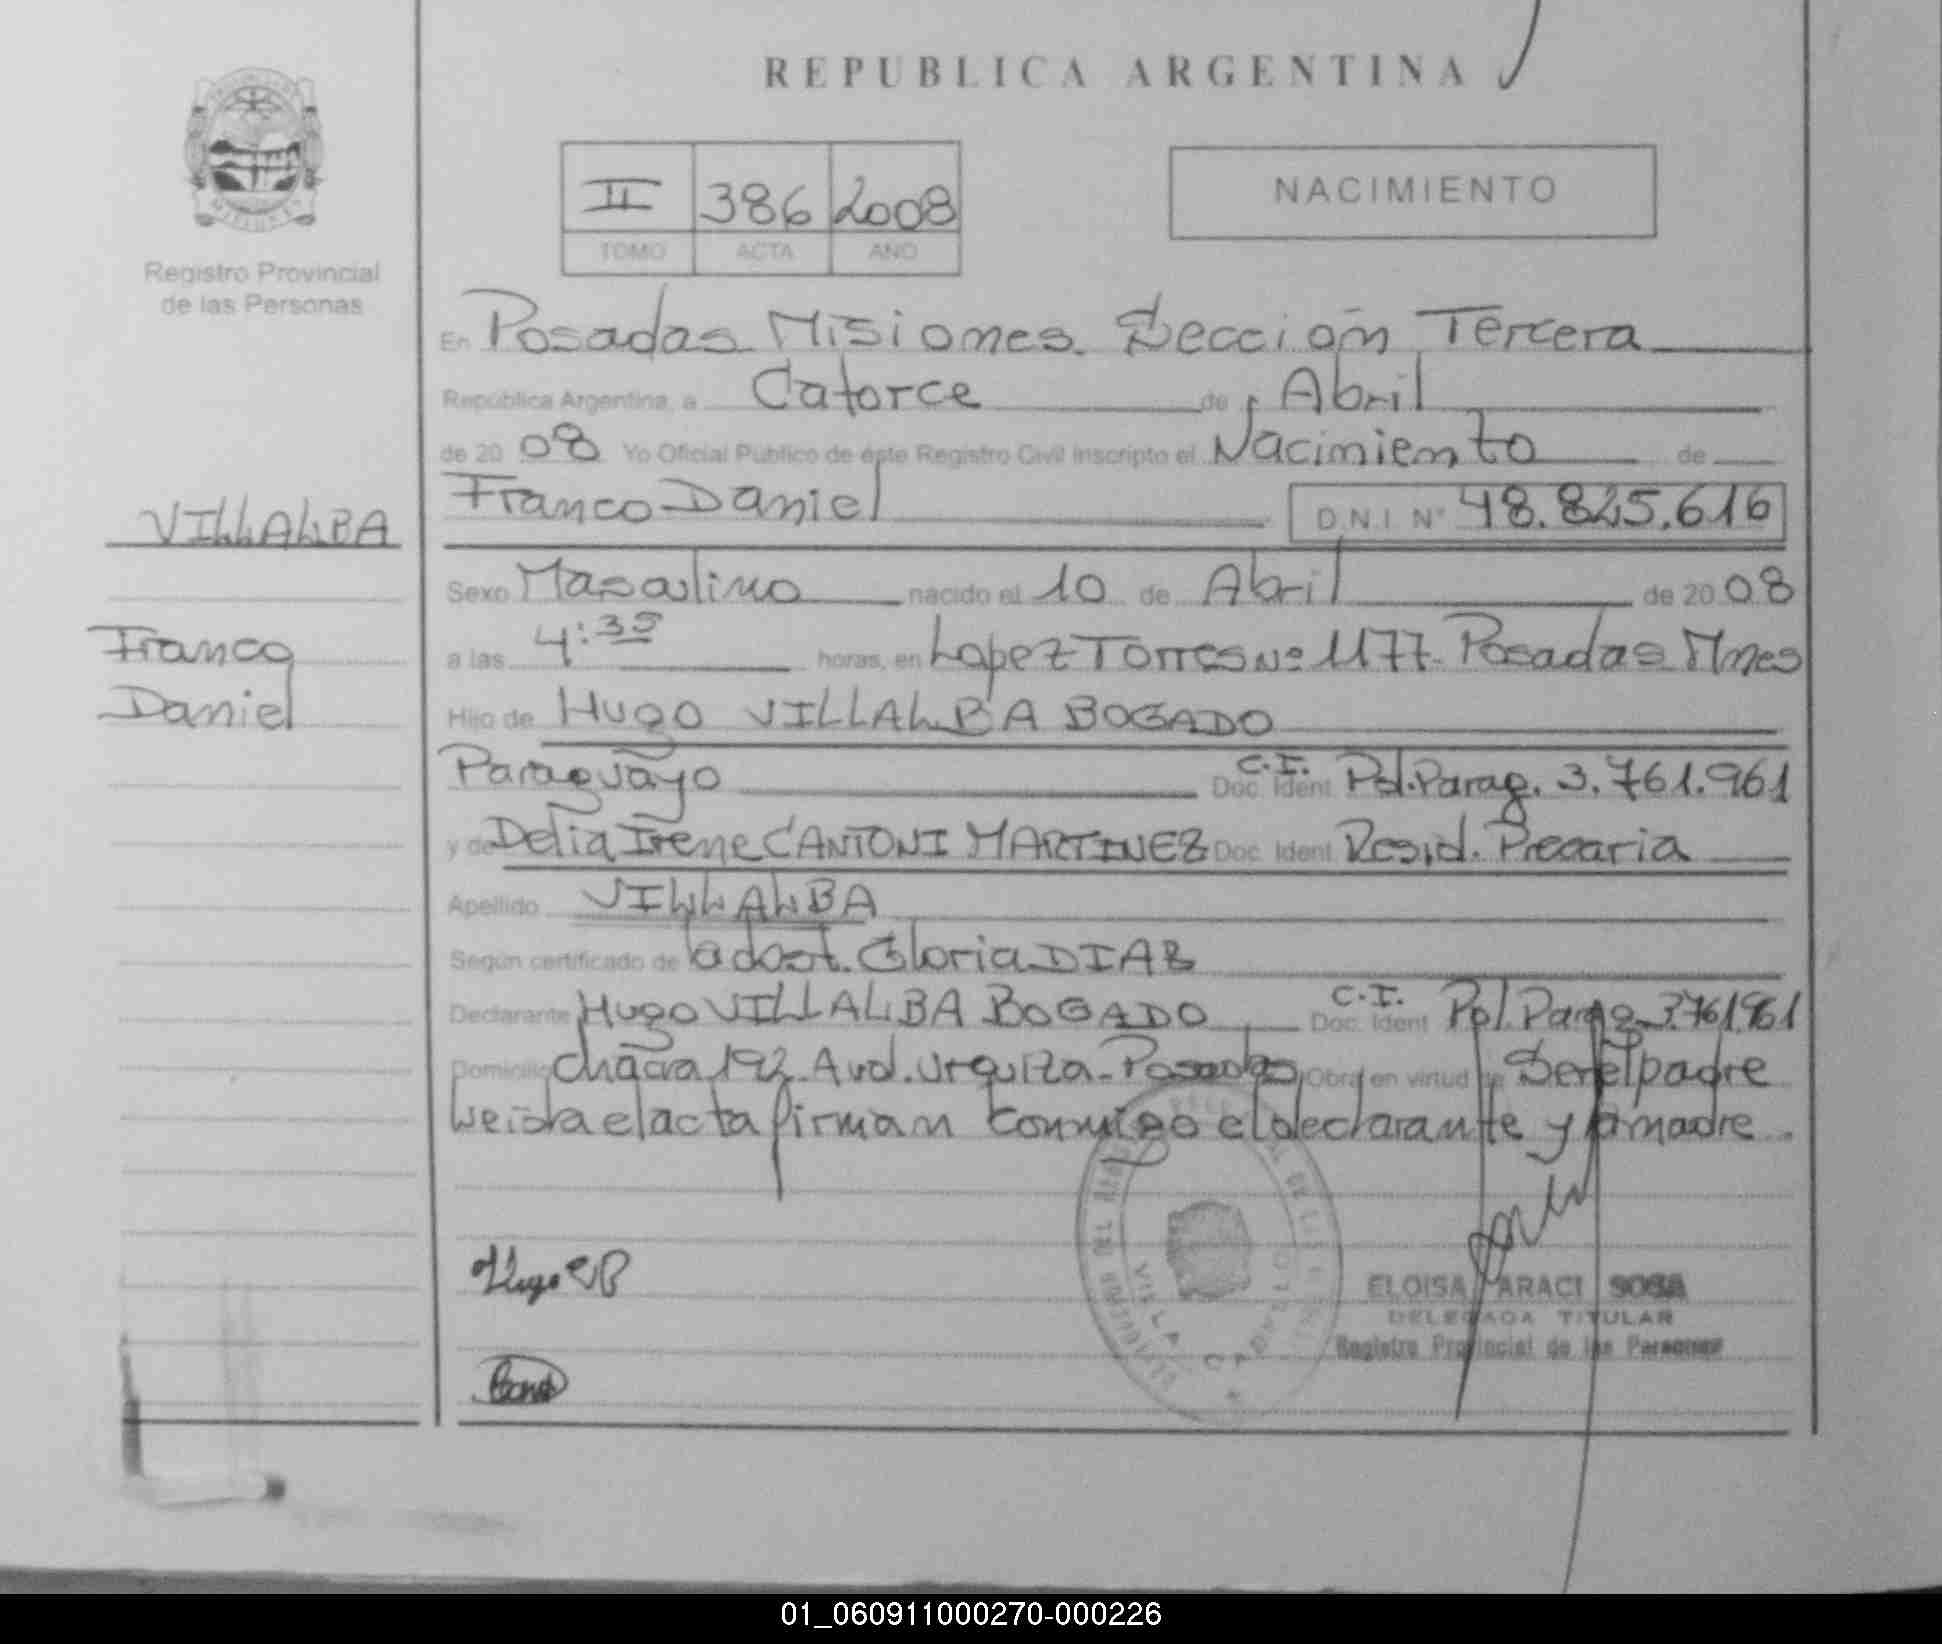 REPUBLICA ARGENTINA
II 386 2008
TOMO ACTA AÑO
NACIMIENTO
Registro Provincial
de las Personas
En Posadas Misiones. Sección Tercera
República Argentina, a Catorce de Abril
de 2008 Yo Oficial Público de éste Registro Civil inscripto el Nacimiento de
Franco Daniel D.N.I Nº 48.825.616
VILLALBA
Sexo Masculino nacido el 10 de Abril de 2008
Franco
Daniel
a las 4:35 horas, en Lopez Torres Nº 1177. Posadas Mnes
Hijo de Hugo VILLALBA BOGADO
Paraguayo C.I. Doc. Ident. Pol. Parag. 3.761.961
y de Delia Irene CANTONI MARTINEZ Doc. Ident. Resid. Precaria
Apellido VILLALBA
Según certificado de la dost. Gloria DIAB
Declarante Hugo VILLALBA BOGADO C.I. Doc. Ident Pol. Parag. 3.761.961
Domicilio Chacra 192. Avd. Urquiza - Posadas Obra en virtud de Ser el padre
Leida el acta firman conmigo el declarante y la madre.
Hugo VB
ELOISA ARACI SOSA
DELEGADA TITULAR
Registro Provincial de las Personas
01_060911000270-000226